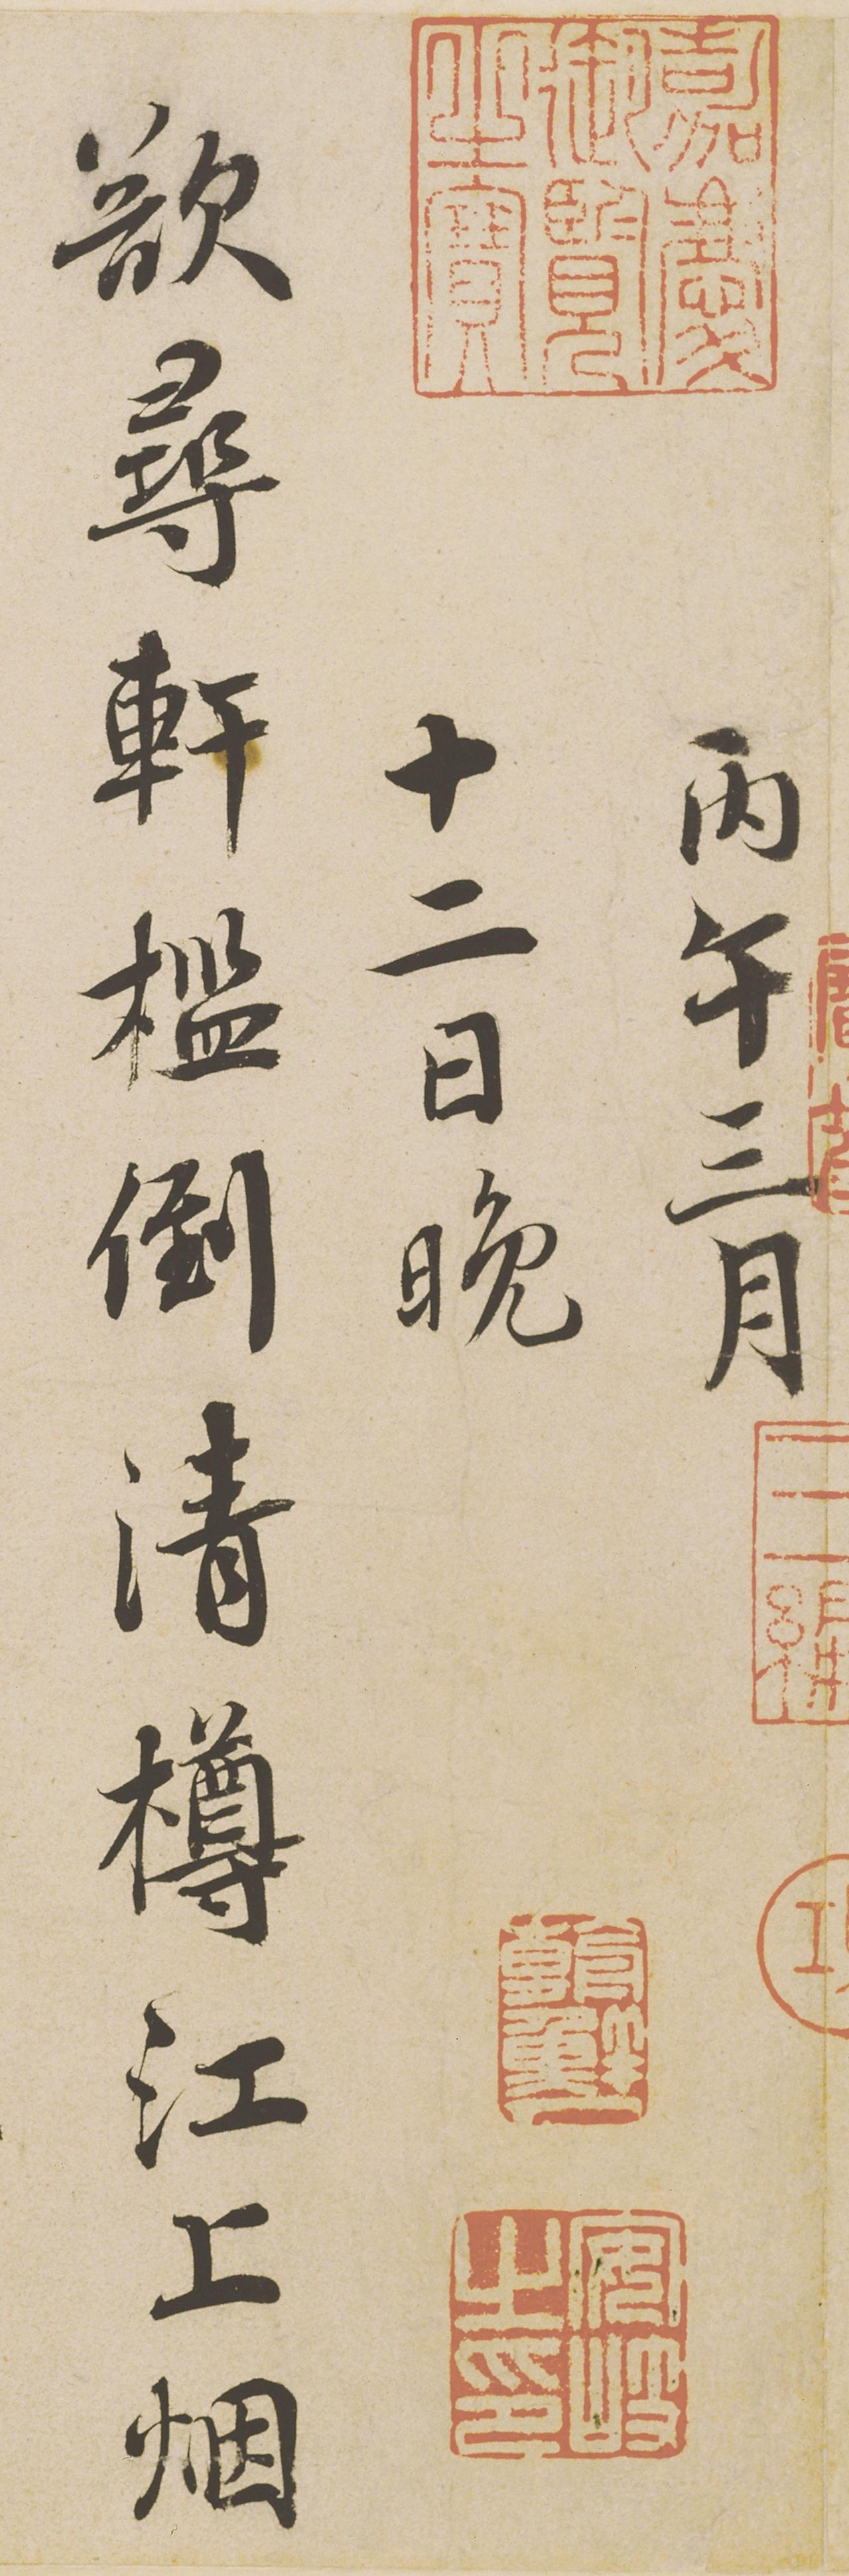 丙午三月
十二日晚
欲尋軒檻倒清樽江上烟
嘉慶御覽之寶
安岐之印